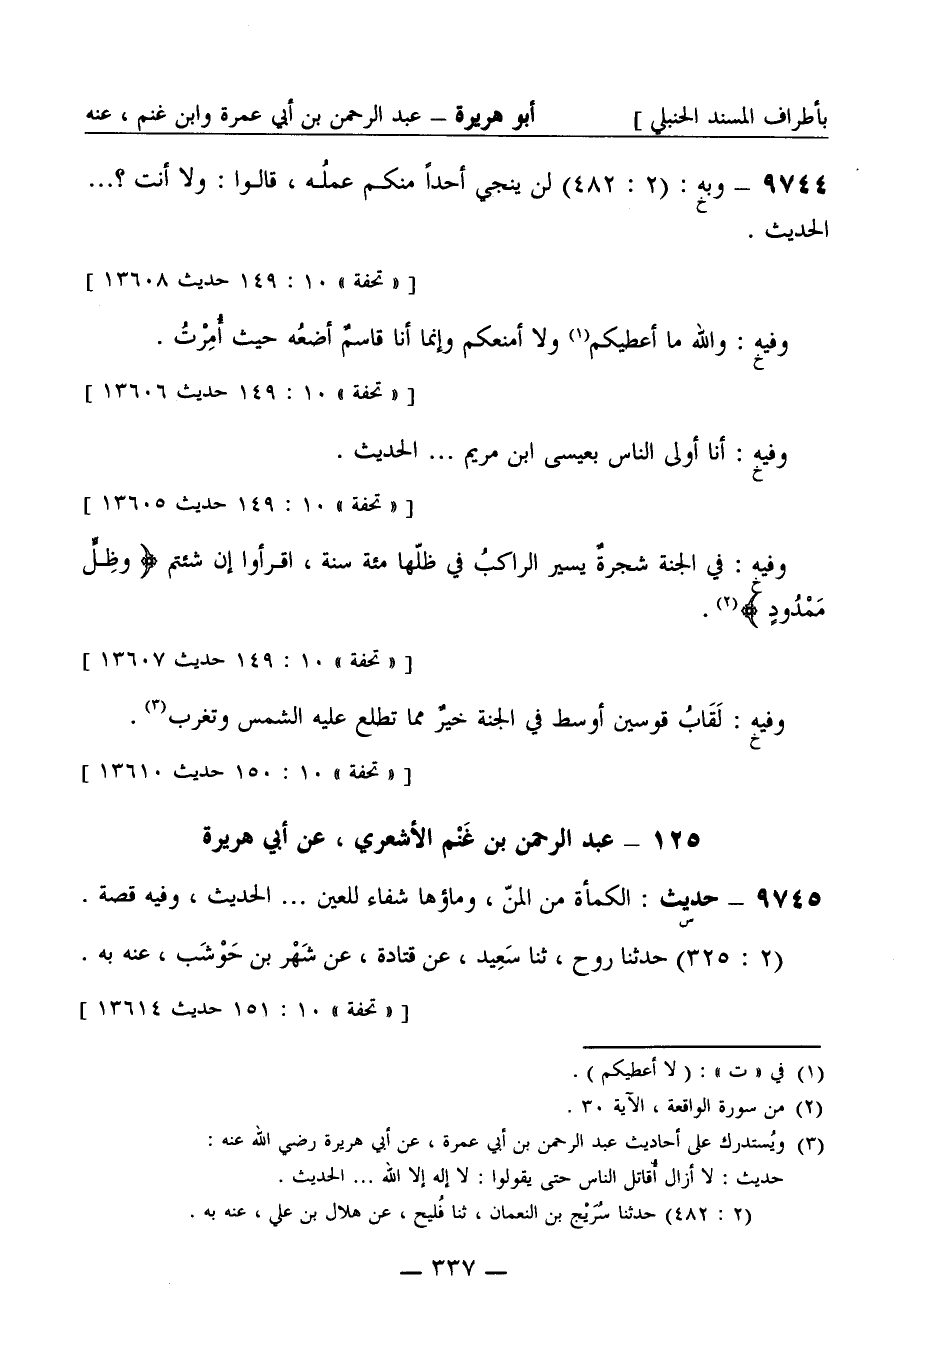 بأطراف المسند الحنبلي ] أبو هريرة – عبد الرحمن بن أبي عمرة وابن غنم ، عنه
٩٧٤٤ – وبه : (٢ : ٤٨٢) لن ينجي أحداً منكم عملُه ، قالوا : ولا أنت ؟...
خ
الحديث .
[ « تحفة » ١٠ : ١٤٩ حديث ١٣٦٠٨ ]
وفيه : والله ما أعطيكم(١) ولا أمنعكم وإنما أنا قاسمٌ أضعُه حيث أُمِرْتُ .
خ
[ « تحفة » ١٠ : ١٤٩ حديث ١٣٦٠٦ ]
وفيه : أنا أولى الناس بعيسى ابن مريم ... الحديث .
خ
[ « تحفة » ١٠ : ١٤٩ حديث ١٣٦٠٥ ]
وفيه : في الجنة شجرةٌ يسير الراكبُ في ظلّها مئة سنة ، اقرأوا إن شئتم ﴿ وظِلٍّ
خ
مَمْدُودٍ ﴾(٢) .
[ « تحفة » ١٠ : ١٤٩ حديث ١٣٦٠٧ ]
وفيه : لَقَابُ قوسين أوسط في الجنة خيرٌ مما تطلع عليه الشمس وتغرب(٣) .
خ
[ « تحفة » ١٠ : ١٥٠ حديث ١٣٦١٠ ]
١٢٥ – عبد الرحمن بن غَنْم الأشعري ، عن أبي هريرة
٩٧٤٥ – حديث : الكمأة من المنّ ، وماؤها شفاء للعين ... الحديث ، وفيه قصة .
س
(٢ : ٣٢٥) حدثنا روح ، ثنا سَعِيد ، عن قتادة ، عن شَهْر بن حَوْشَب ، عنه به .
[ « تحفة » ١٠ : ١٥١ حديث ١٣٦١٤ ]
(١) في « ت » : ( لا أعطيكم ) .
(٢) من سورة الواقعة ، الآية ٣٠ .
(٣) ويُستدرك على أحاديث عبد الرحمن بن أبي عمرة ، عن أبي هريرة رضي الله عنه :
حديث : لا أزال أُقاتل الناس حتى يقولوا : لا إله إلا الله ... الحديث .
(٢ : ٤٨٢) حدثنا سُرَيْج بن النعمان ، ثنا فُليح ، عن هلال بن علي ، عنه به .
– ٣٣٧ –